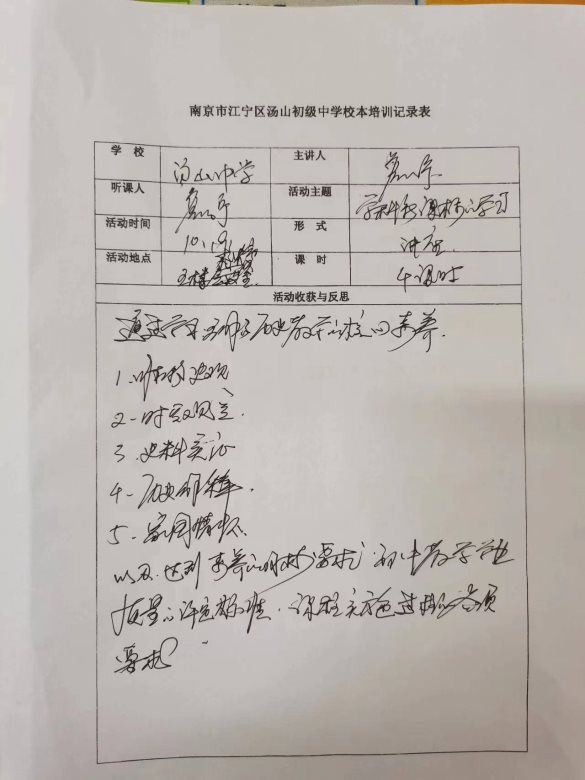 南京市江宁区汤山初级中学校本培训记录表
学 校 汤山中学 主讲人
听课人 活动主题 学科新课标的学习
活动时间 10.19 形 式 讲座
活动地点 五楼会议室 课 时 4课时
活动收获与反思
通过学习了解了历史教学的核心素养.
1.唯物史观
2.时空观念.
3.史料实证
4.历史解释.
5.家国情怀.
以及达到素养的目标要求,初中教学学业
质量的评定标准.课程实施过程的各项
要求